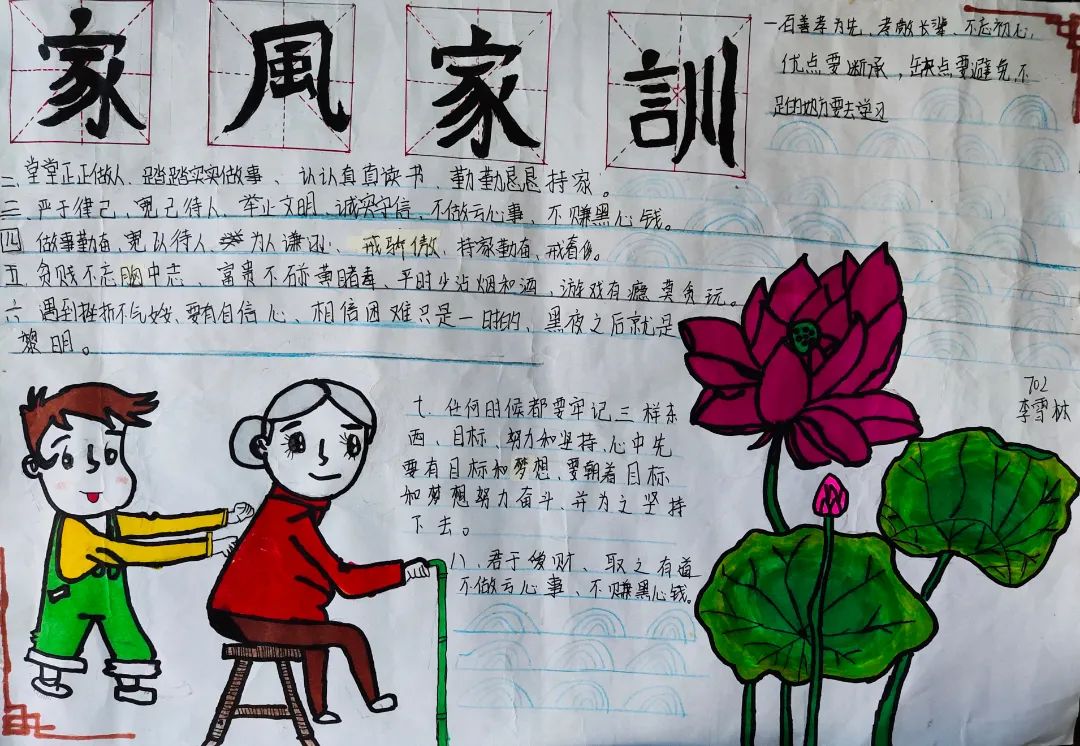 家風家訓
一百善孝为先，孝敬长辈、不忘初心，
优点要断承，缺点要避免不
足的地方要去学习
二、堂堂正正做人、踏踏实实做事、认认真真读书、勤勤恳恳持家。
三、严于律己、宽己待人、举止文明、诚实守信、不做亏心事、不赚黑心钱。
四 做事勤奋、宽以待人、为人谦 、戒骄傲、持家勤奋、戒
五、贫贱不忘胸中志、富贵不 黄 、平时少沾烟和酒、游戏有瘾莫贪玩。
六 遇到挫折不气 、要有自信心、相信困难只是一时的、黑夜之后就是
黎明。
七、任何时候都要牢记三样东
西、目标、努力和坚持、心中先
要有目标和梦想、要朝着目标
和梦想努力奋斗、并为之坚持
下去。
八、君子爱财、取之有道
不做亏心事、不赚黑心钱。
702
李雪林